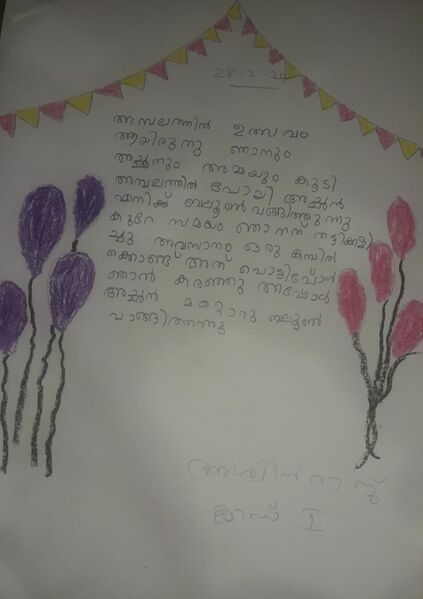 28-2-20
അമ്പലത്തിൽ ഉത്സവം
ആയിരുന്നു ഞാനും
അച്ഛനും അമ്മയും കൂടി
അമ്പലത്തിൽ പോയി അച്ഛൻ
എനിക്ക് ബലൂൺ വങ്ങിത്തുന്നു
കുറേ സമയം ഞാനത് തട്ടിക്കളി
ച്ചു അവസാനം ഒരു കമ്പിൽ
ക്കൊണ്ട് അത് പൊട്ടിപ്പോൾ
ഞാൻ കരഞ്ഞു അപ്പോൾ
അച്ഛൻ മറ്റൊരു ബലൂൺ
വാങ്ങിത്തന്നു
അശ്വിൻ രാജ്
ക്ലാസ് I